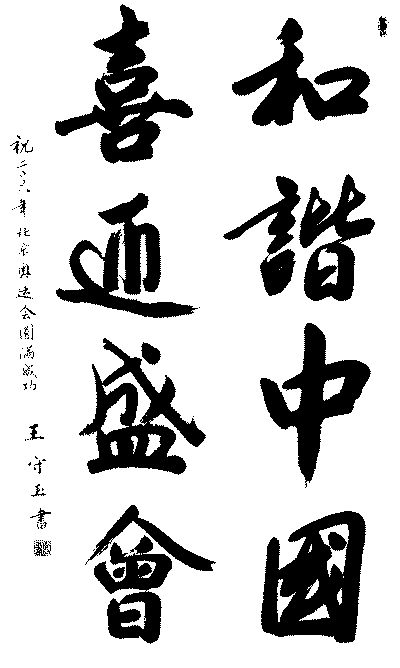 和諧中國
喜迎盛會
祝二〇〇八年北京奥运会圆满成功
王守玉書